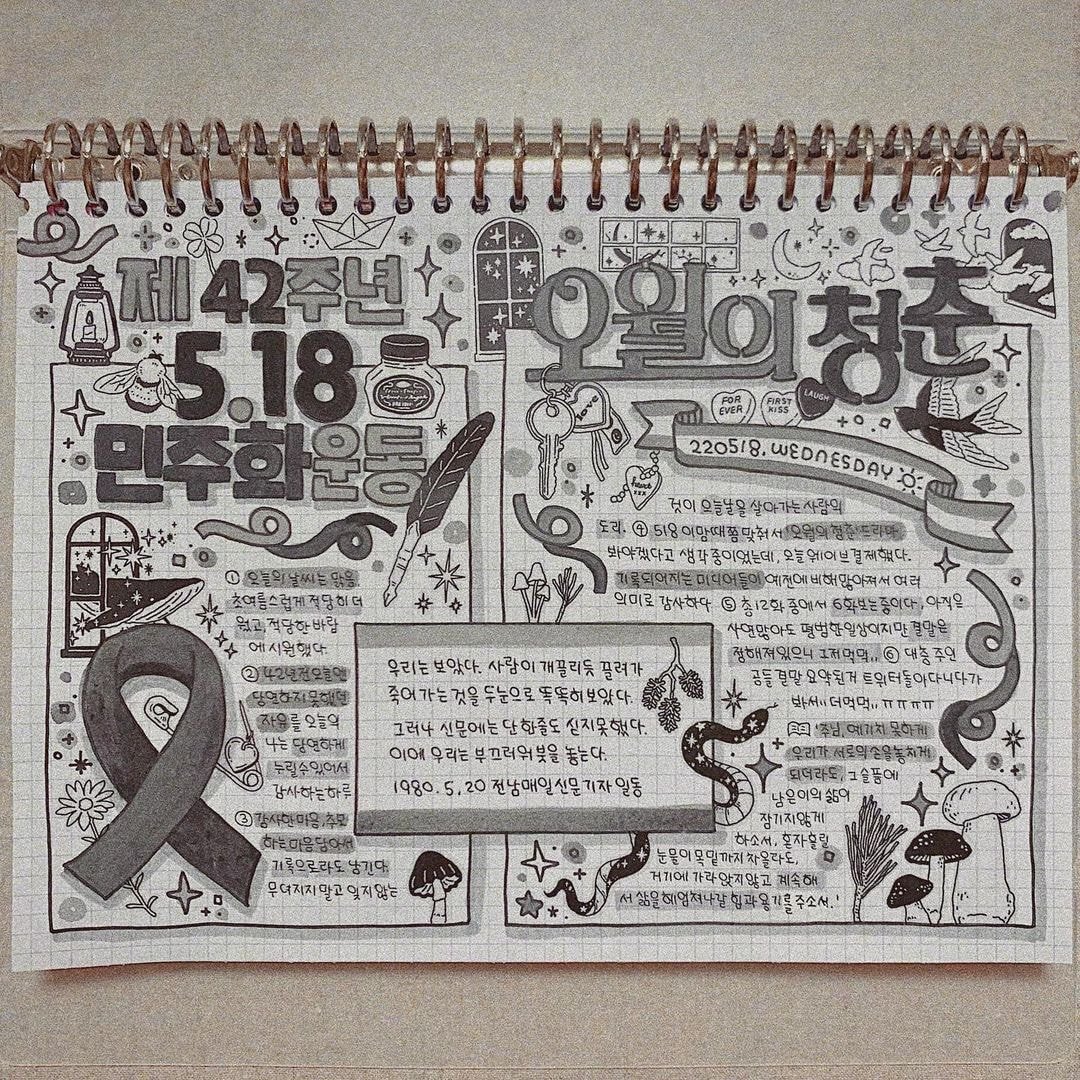 제 42주년
5.18
민주화운동
① 오늘의 날씨는 맑음.
초여름스럽게 적당히 더
웠고, 적당한 바람
에 시원했다.
② 42년전 오늘엔
당연하지 못했던
자유를 오늘의
나는 당연하게
누릴수있어서
감사하는하루
③ 감사한마음, 추모
하는마음담아서
기록으로라도 남긴다.
무뎌지지말고 잊지않는
우리는 보았다. 사람이 개끌리듯 끌려가
죽어가는것을 두눈으로 똑똑히보았다.
그러나 신문에는 단 한줄도 싣지못했다.
이에 우리는 부끄러워 붓을 놓는다.
1980. 5. 20 전남매일신문기자 일동
오월의 청춘
love
FOR EVER
FIRST KISS
LAUGH
heart xxx
220518. WEDNESDAY
것이 오늘날을 살아가는 사람의
도리. ④ 518 이맘때쯤 맞춰서 '오월의 청춘' 드라마
봐야겠다고 생각중이었는데, 오늘 웨이브 결제했다.
기록되어지는 미디어들이 예전에 비해 많아져서 여러
의미로 감사하다 ⑤ 총12화 중에서 6화보는중이다, 아직은
사연많아도 평범한일상이지만 결말은
정해져있으니 그저먹먹.. ⑥ 대충 주인
공들결말 요약된거 트위터돌아다니다가
봐서.. 더먹먹.. ㅠㅠㅠㅠ
'주님, 예기치 못하게
우리가 서로의손을놓치게
되더라도, 그슬픔에
남은이의 삶이
잠기지않게
하소서, 혼자흘린
눈물이 목밑까지 차올라도,
거기에 가라앉지않고 계속해
서 삶을헤엄쳐나갈 힘과용기를주소서.'